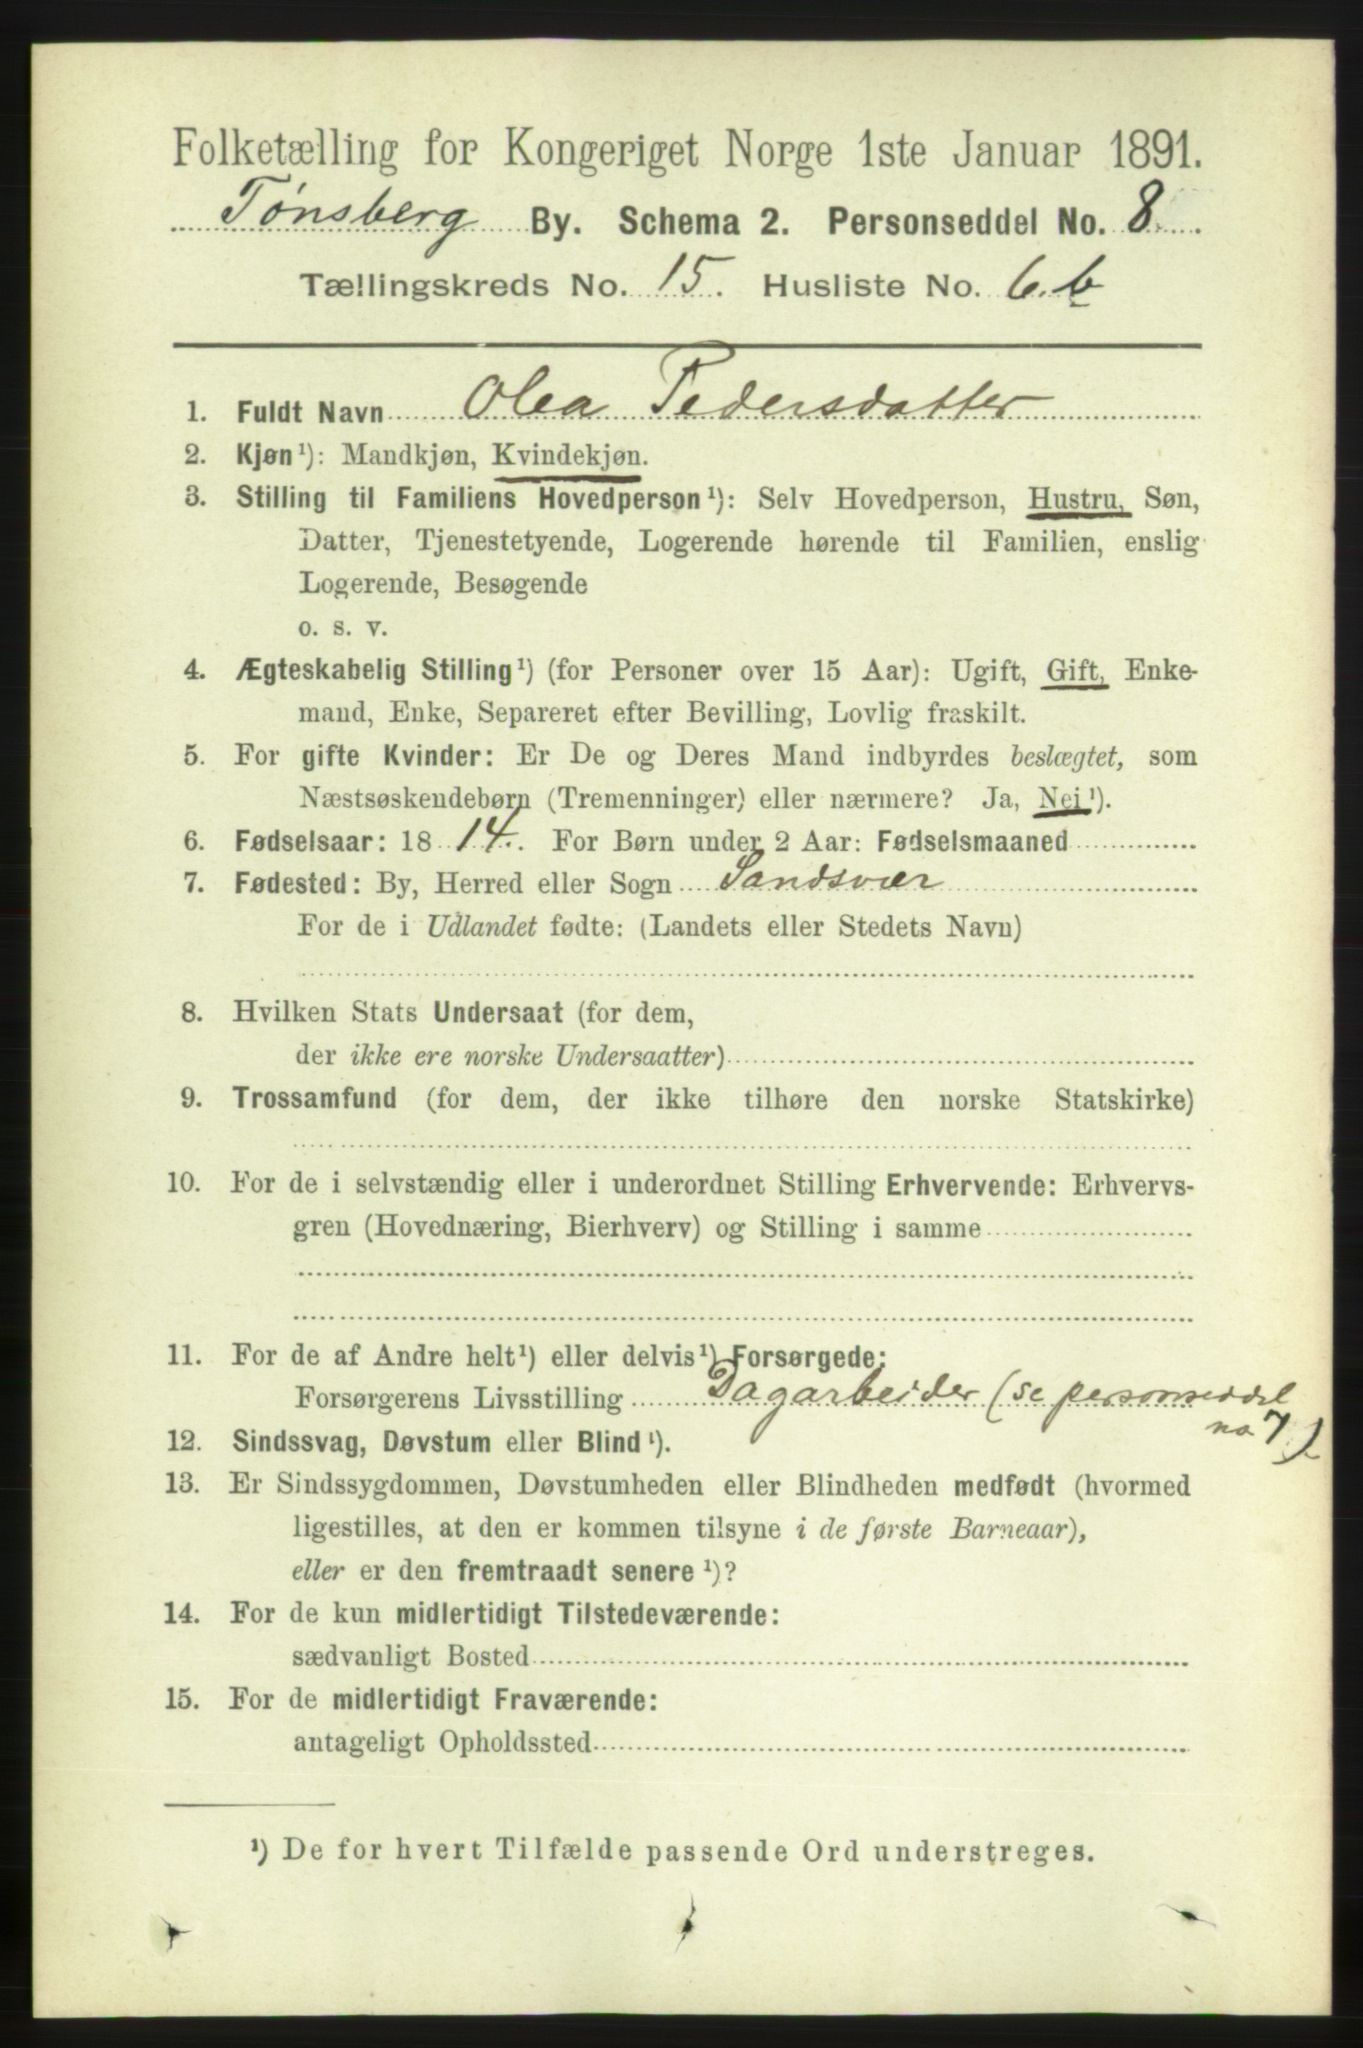 Folketælling for Kongeriget Norge 1ste Januar 1891.
Tønsberg By. Schema 2. Personseddel No. 8.
Tællingskreds No. 15. Husliste No. 6.b
1. Fuldt Navn Olea Pedersdatter
2. Kjøn¹): Mandkjøn, Kvindekjøn.
3. Stilling til Familiens Hovedperson¹): Selv Hovedperson, Hustru, Søn,
Datter, Tjenestetyende, Logerende hørende til Familien, enslig
Logerende, Besøgende
o. s. v.
4. Ægteskabelig Stilling¹) (for Personer over 15 Aar): Ugift, Gift, Enke-
mand, Enke, Separeret efter Bevilling, Lovlig fraskilt.
5. For gifte Kvinder: Er De og Deres Mand indbyrdes beslægtet, som
Næstsøskendebørn (Tremenninger) eller nærmere? Ja, Nei¹).
6. Fødselsaar: 1814. For Børn under 2 Aar: Fødselsmaaned
7. Fødested: By, Herred eller Sogn Sandsvær
For de i Udlandet fødte: (Landets eller Stedets Navn)
8. Hvilken Stats Undersaat (for dem,
der ikke ere norske Undersaatter)
9. Trossamfund (for dem, der ikke tilhøre den norske Statskirke)
10. For de i selvstændig eller i underordnet Stilling Erhvervende: Erhvervs-
gren (Hovednæring, Bierhverv) og Stilling i samme
11. For de af Andre helt¹) eller delvis¹) Forsørgede:
Forsørgerens Livsstilling Dagarbeider (se personseddel
no 7)
12. Sindssvag, Døvstum eller Blind¹).
13. Er Sindssygdommen, Døvstumheden eller Blindheden medfødt (hvormed
ligestilles, at den er kommen tilsyne i de første Barneaar),
eller er den fremtraadt senere¹)?
14. For de kun midlertidigt Tilstedeværende:
sædvanligt Bosted
15. For de midlertidigt Fraværende:
antageligt Opholdssted
¹) De for hvert Tilfælde passende Ord understreges.